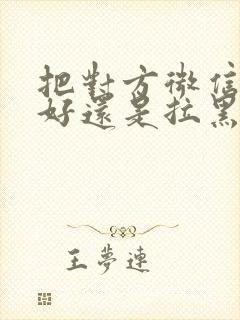 把對方微信
好還是拉黑
王夢連